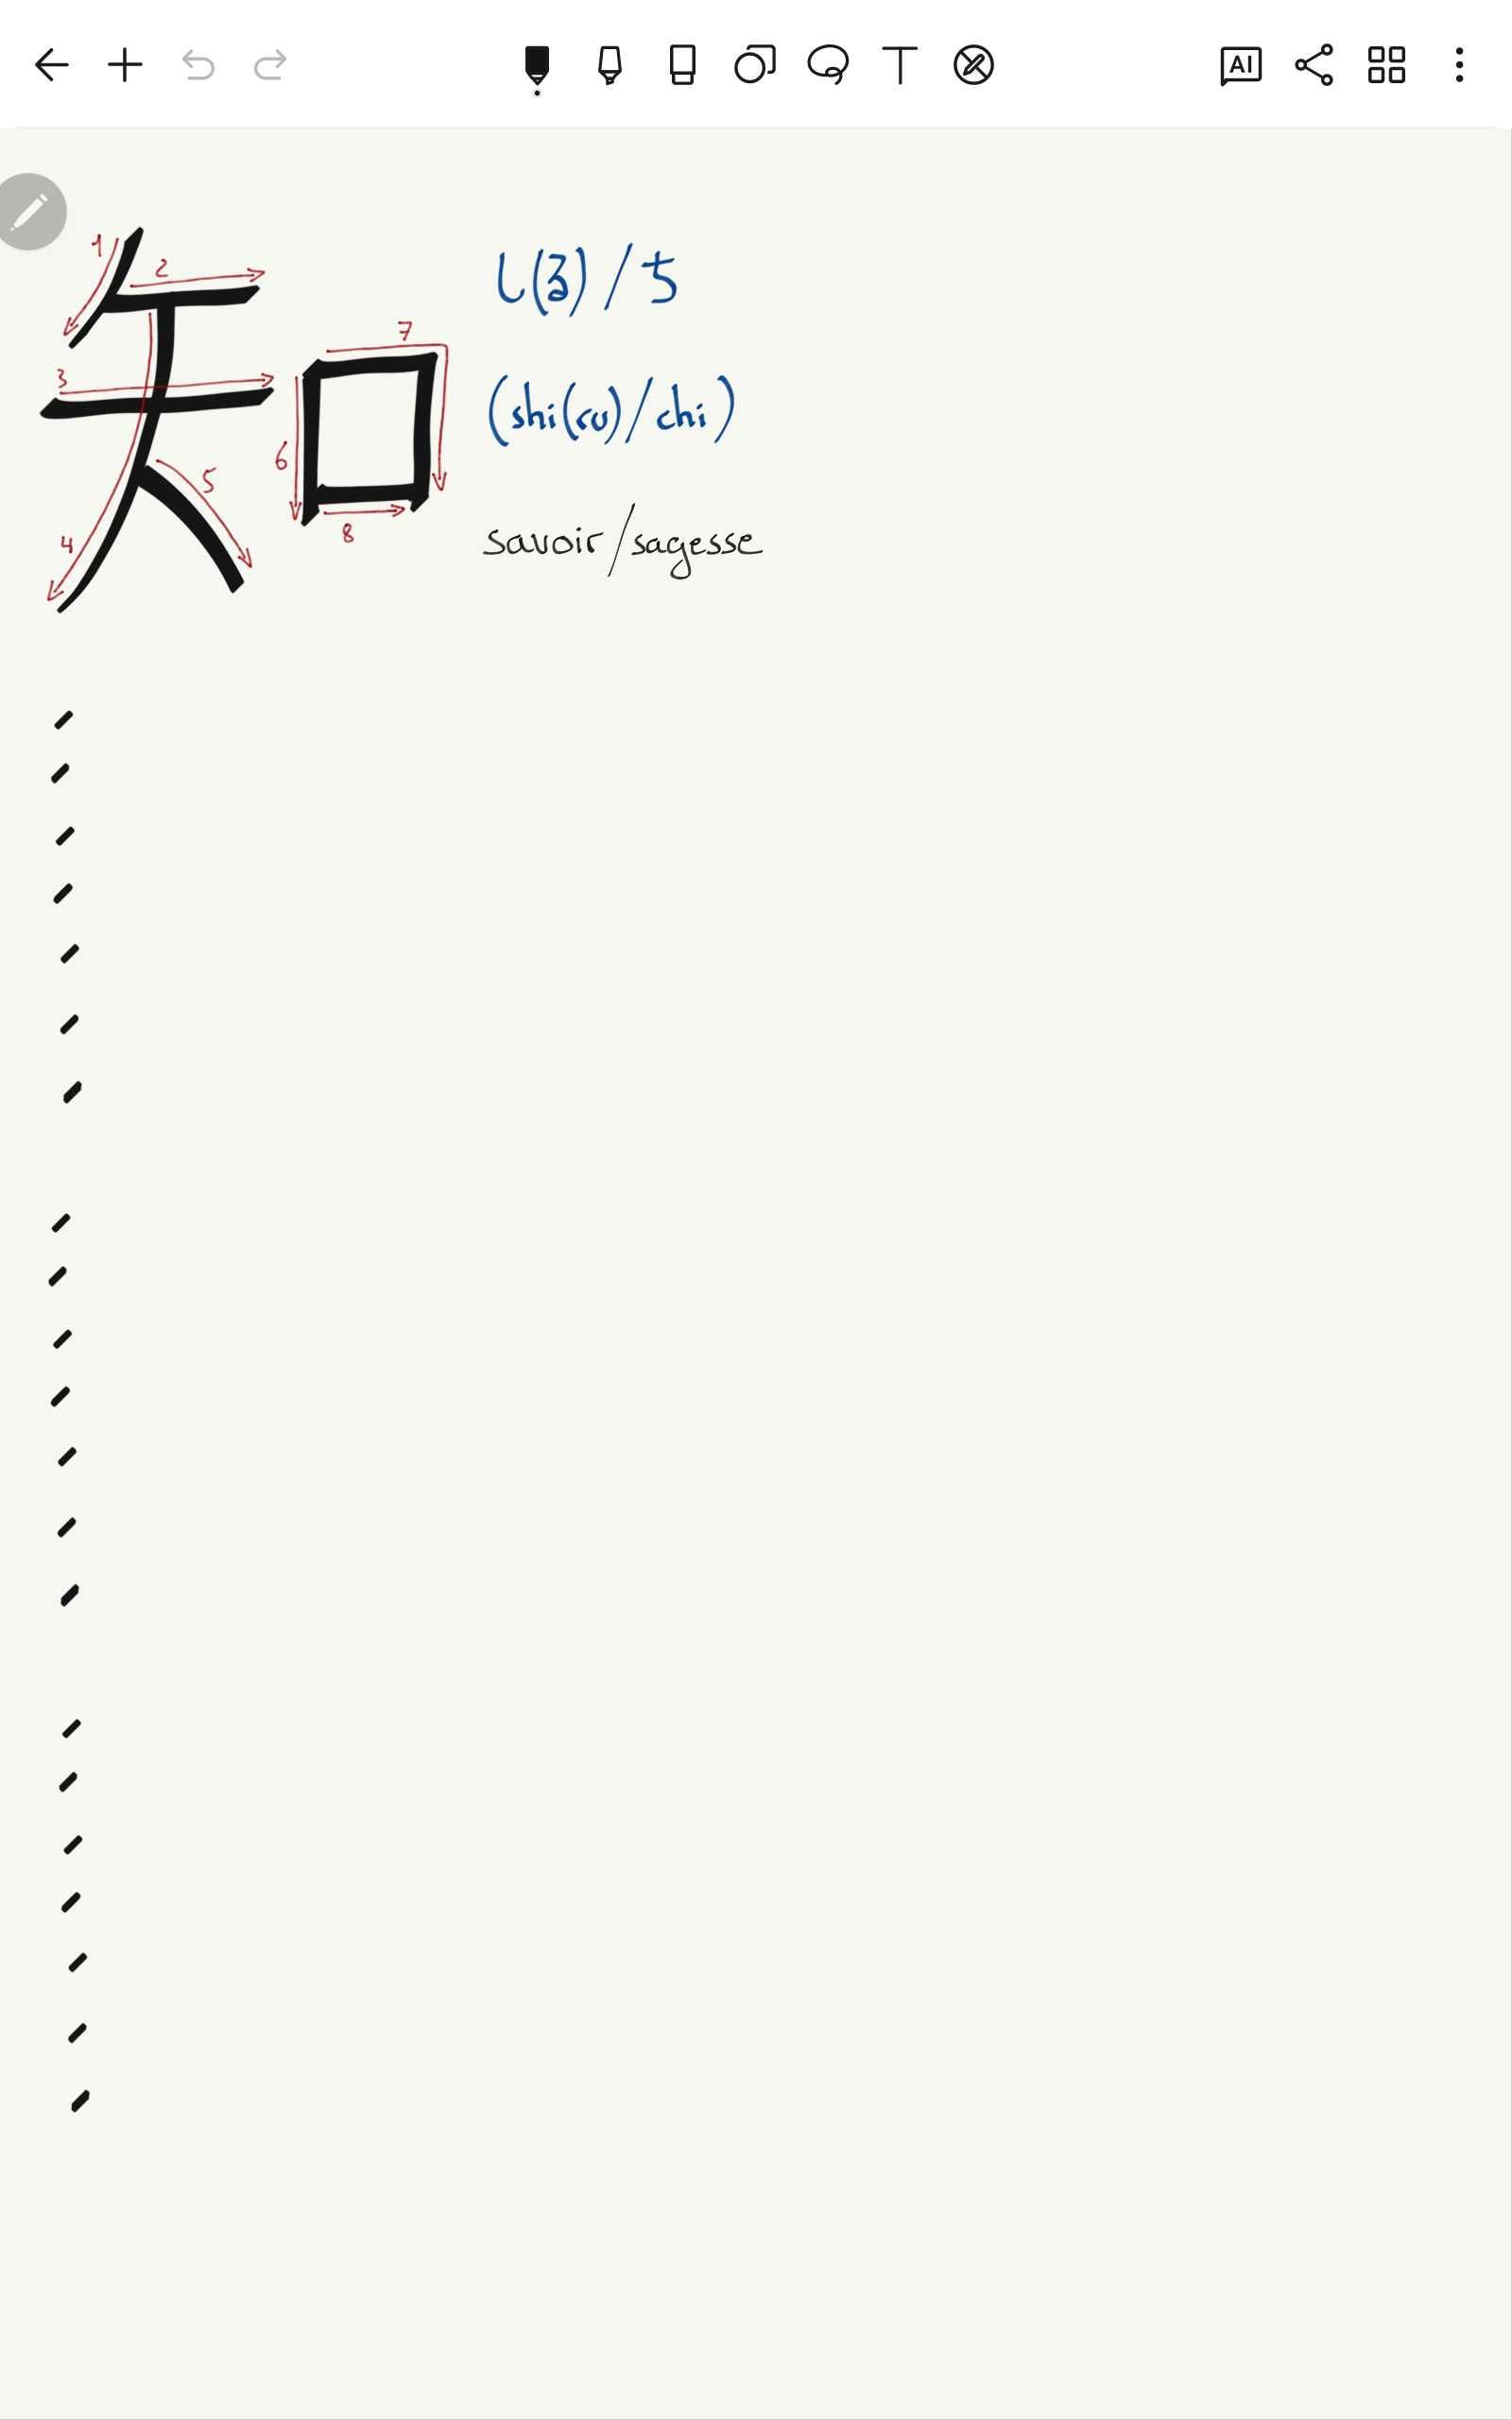 知
1 2 3 4 5 6 7 8
し(る)/ち
(shi(ru)/chi)
savoir/sagesse